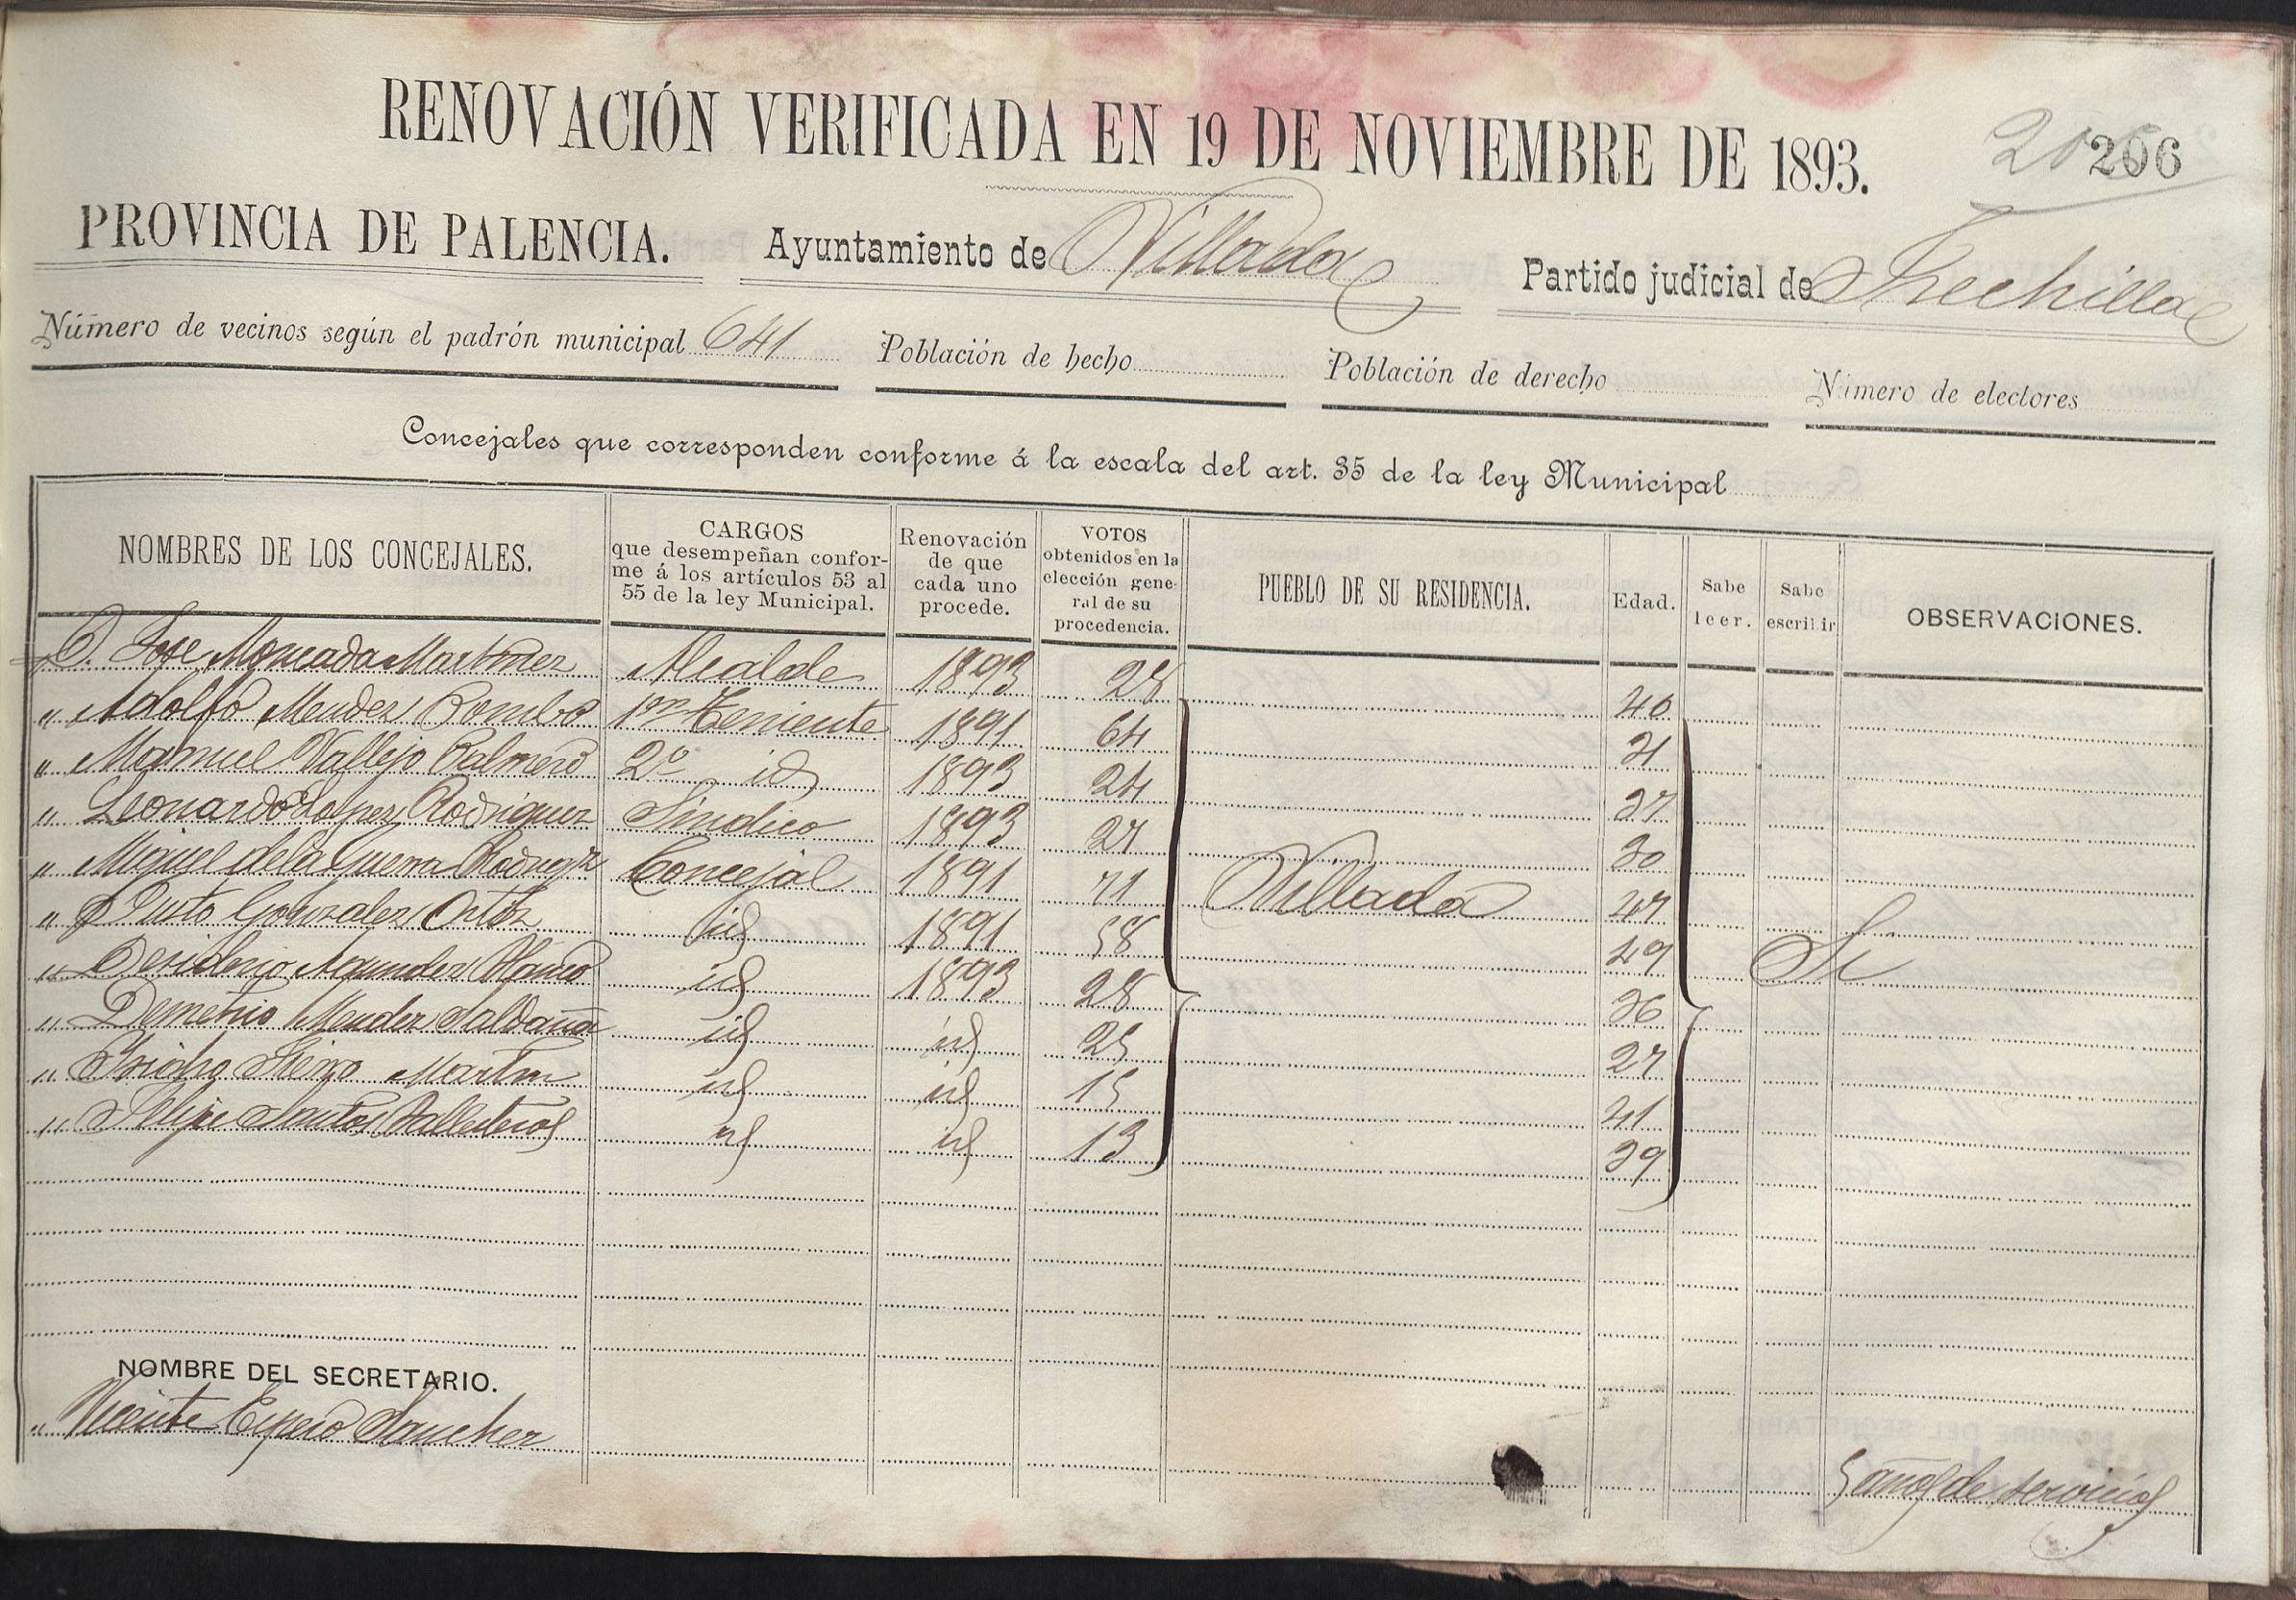 RENOVACIÓN VERIFICADA EN 19 DE NOVIEMBRE DE 1893.
206
PROVINCIA DE PALENCIA. Ayuntamiento de Villada Partido judicial de Frechilla
Número de vecinos según el padrón municipal 641 Población de hecho Población de derecho Número de electores
Concejales que corresponden conforme á la escala del art. 35 de la ley Municipal
NOMBRES DE LOS CONCEJALES. CARGOS que desempeñan conforme á los artículos 53 al 55 de la ley Municipal. Renovación de que cada uno procede. VOTOS obtenidos en la elección general de su procedencia. PUEBLO DE SU RESIDENCIA. Edad. Sabe leer. Sabe escribir OBSERVACIONES.
D. Jose Moncada Martinez Alcalde 1893 28 40
" Adolfo Mendez Bombo 1er Teniente 1891 64 31
" Manuel Vallejo Palmero 2º id 1893 24 37
" Leonardo Lopez Rodriguez Sindico 1893 27 30
" Miguel de la Guerra Rodrigz Concejal 1891 71 Villada 47
" Justo Gonzalez Ortiz id 1891 58 49 Si
" Desiderio Agundez Blanco id 1893 28 36
" Demetrio Mendez Saldaña id id 25 27
" Isidro Sierra Martin id id 15 41
" Felipe Santos Ballesteros id id 13 39
NOMBRE DEL SECRETARIO.
" Vicente Espeso Sanchez 5 años de servicios